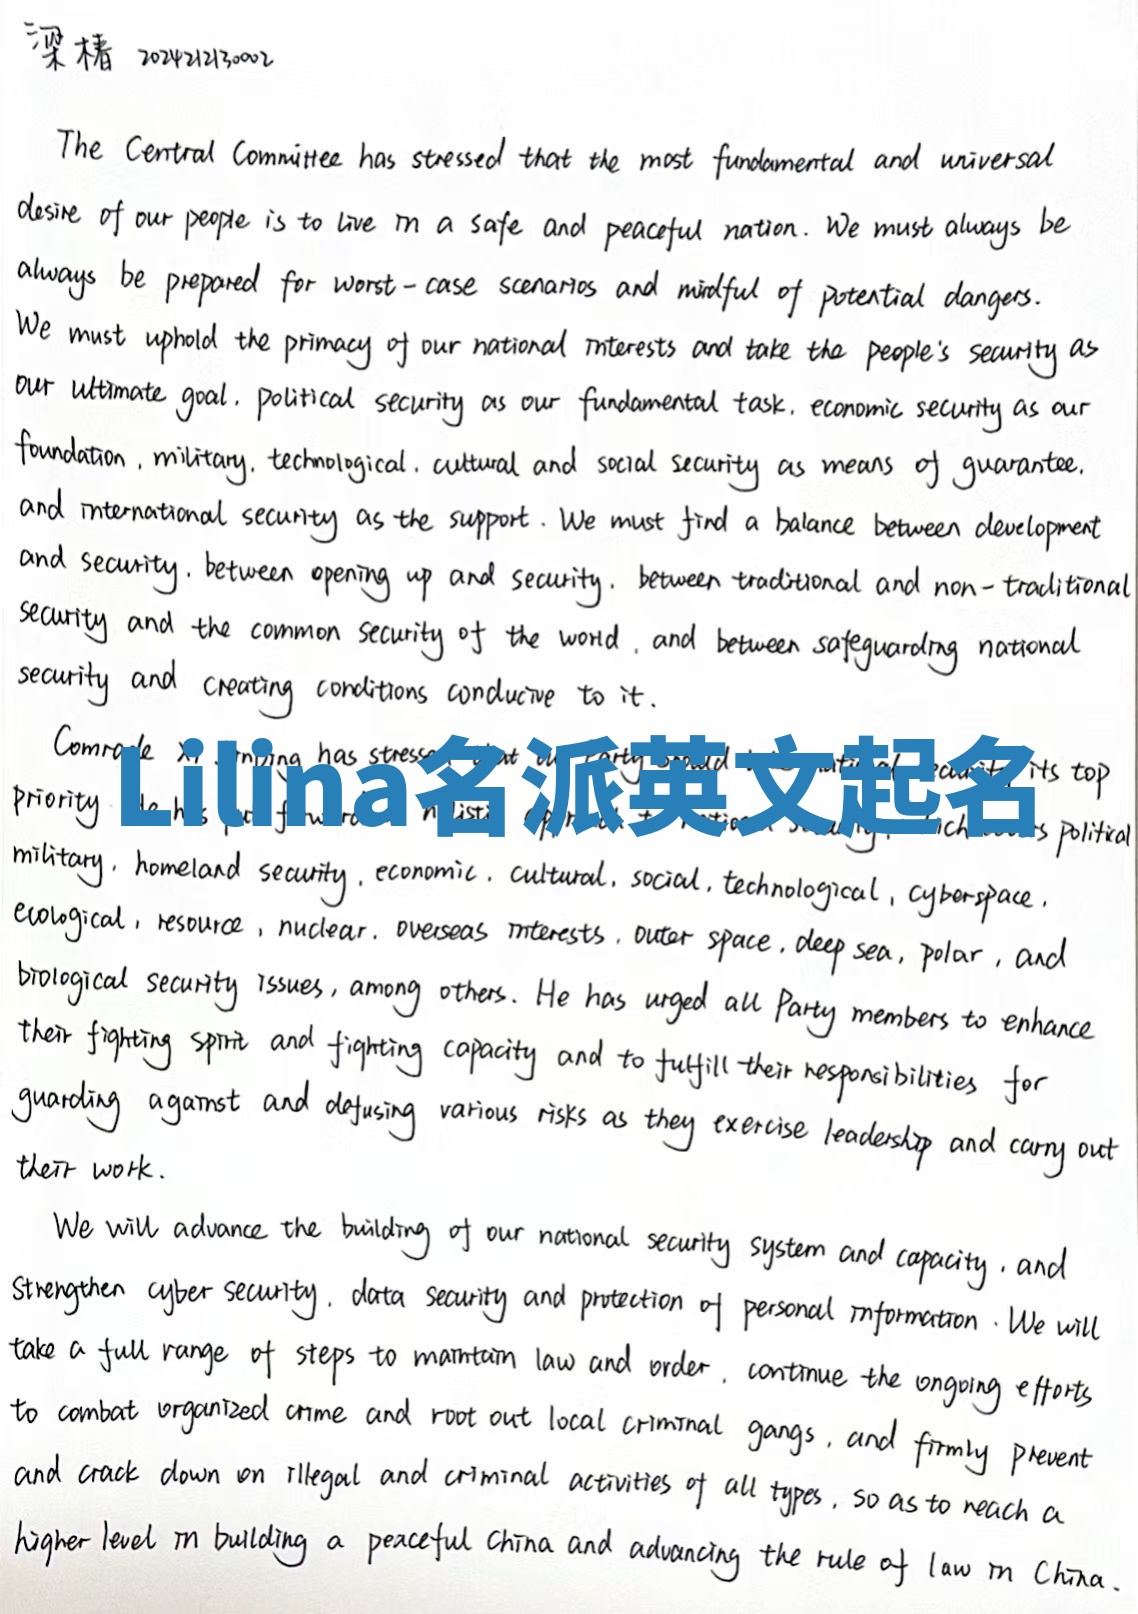 梁椿 2024212130002
The Central Committee has stressed that the most fundamental and universal
desire of our people is to live in a safe and peaceful nation. We must always be
always be prepared for worst-case scenarios and mindful of potential dangers.
We must uphold the primacy of our national interests and take the people's security as
our ultimate goal, political security as our fundamental task, economic security as our
foundation, military, technological, cultural and social security as means of guarantee,
and international security as the support. We must find a balance between development
and security, between opening up and security, between traditional and non-traditional
security and the common security of the world, and between safeguarding national
security and creating conditions conducive to it.
Comrade has its top
Lilina名派英文起名
priority political
military, homeland security, economic, cultural, social, technological, cyberspace,
ecological, resource, nuclear, overseas interests, outer space, deep sea, polar, and
biological security issues, among others. He has urged all Party members to enhance
their fighting spirit and fighting capacity and to fulfill their responsibilities for
guarding against and defusing various risks as they exercise leadership and carry out
their work.
We will advance the building of our national security system and capacity, and
strengthen cyber security, data security and protection of personal information. We will
take a full range of steps to maintain law and order, continue the ongoing efforts
to combat organized crime and root out local criminal gangs, and firmly prevent
and crack down on illegal and criminal activities of all types, so as to reach a
higher level in building a peaceful China and advancing the rule of law in China.